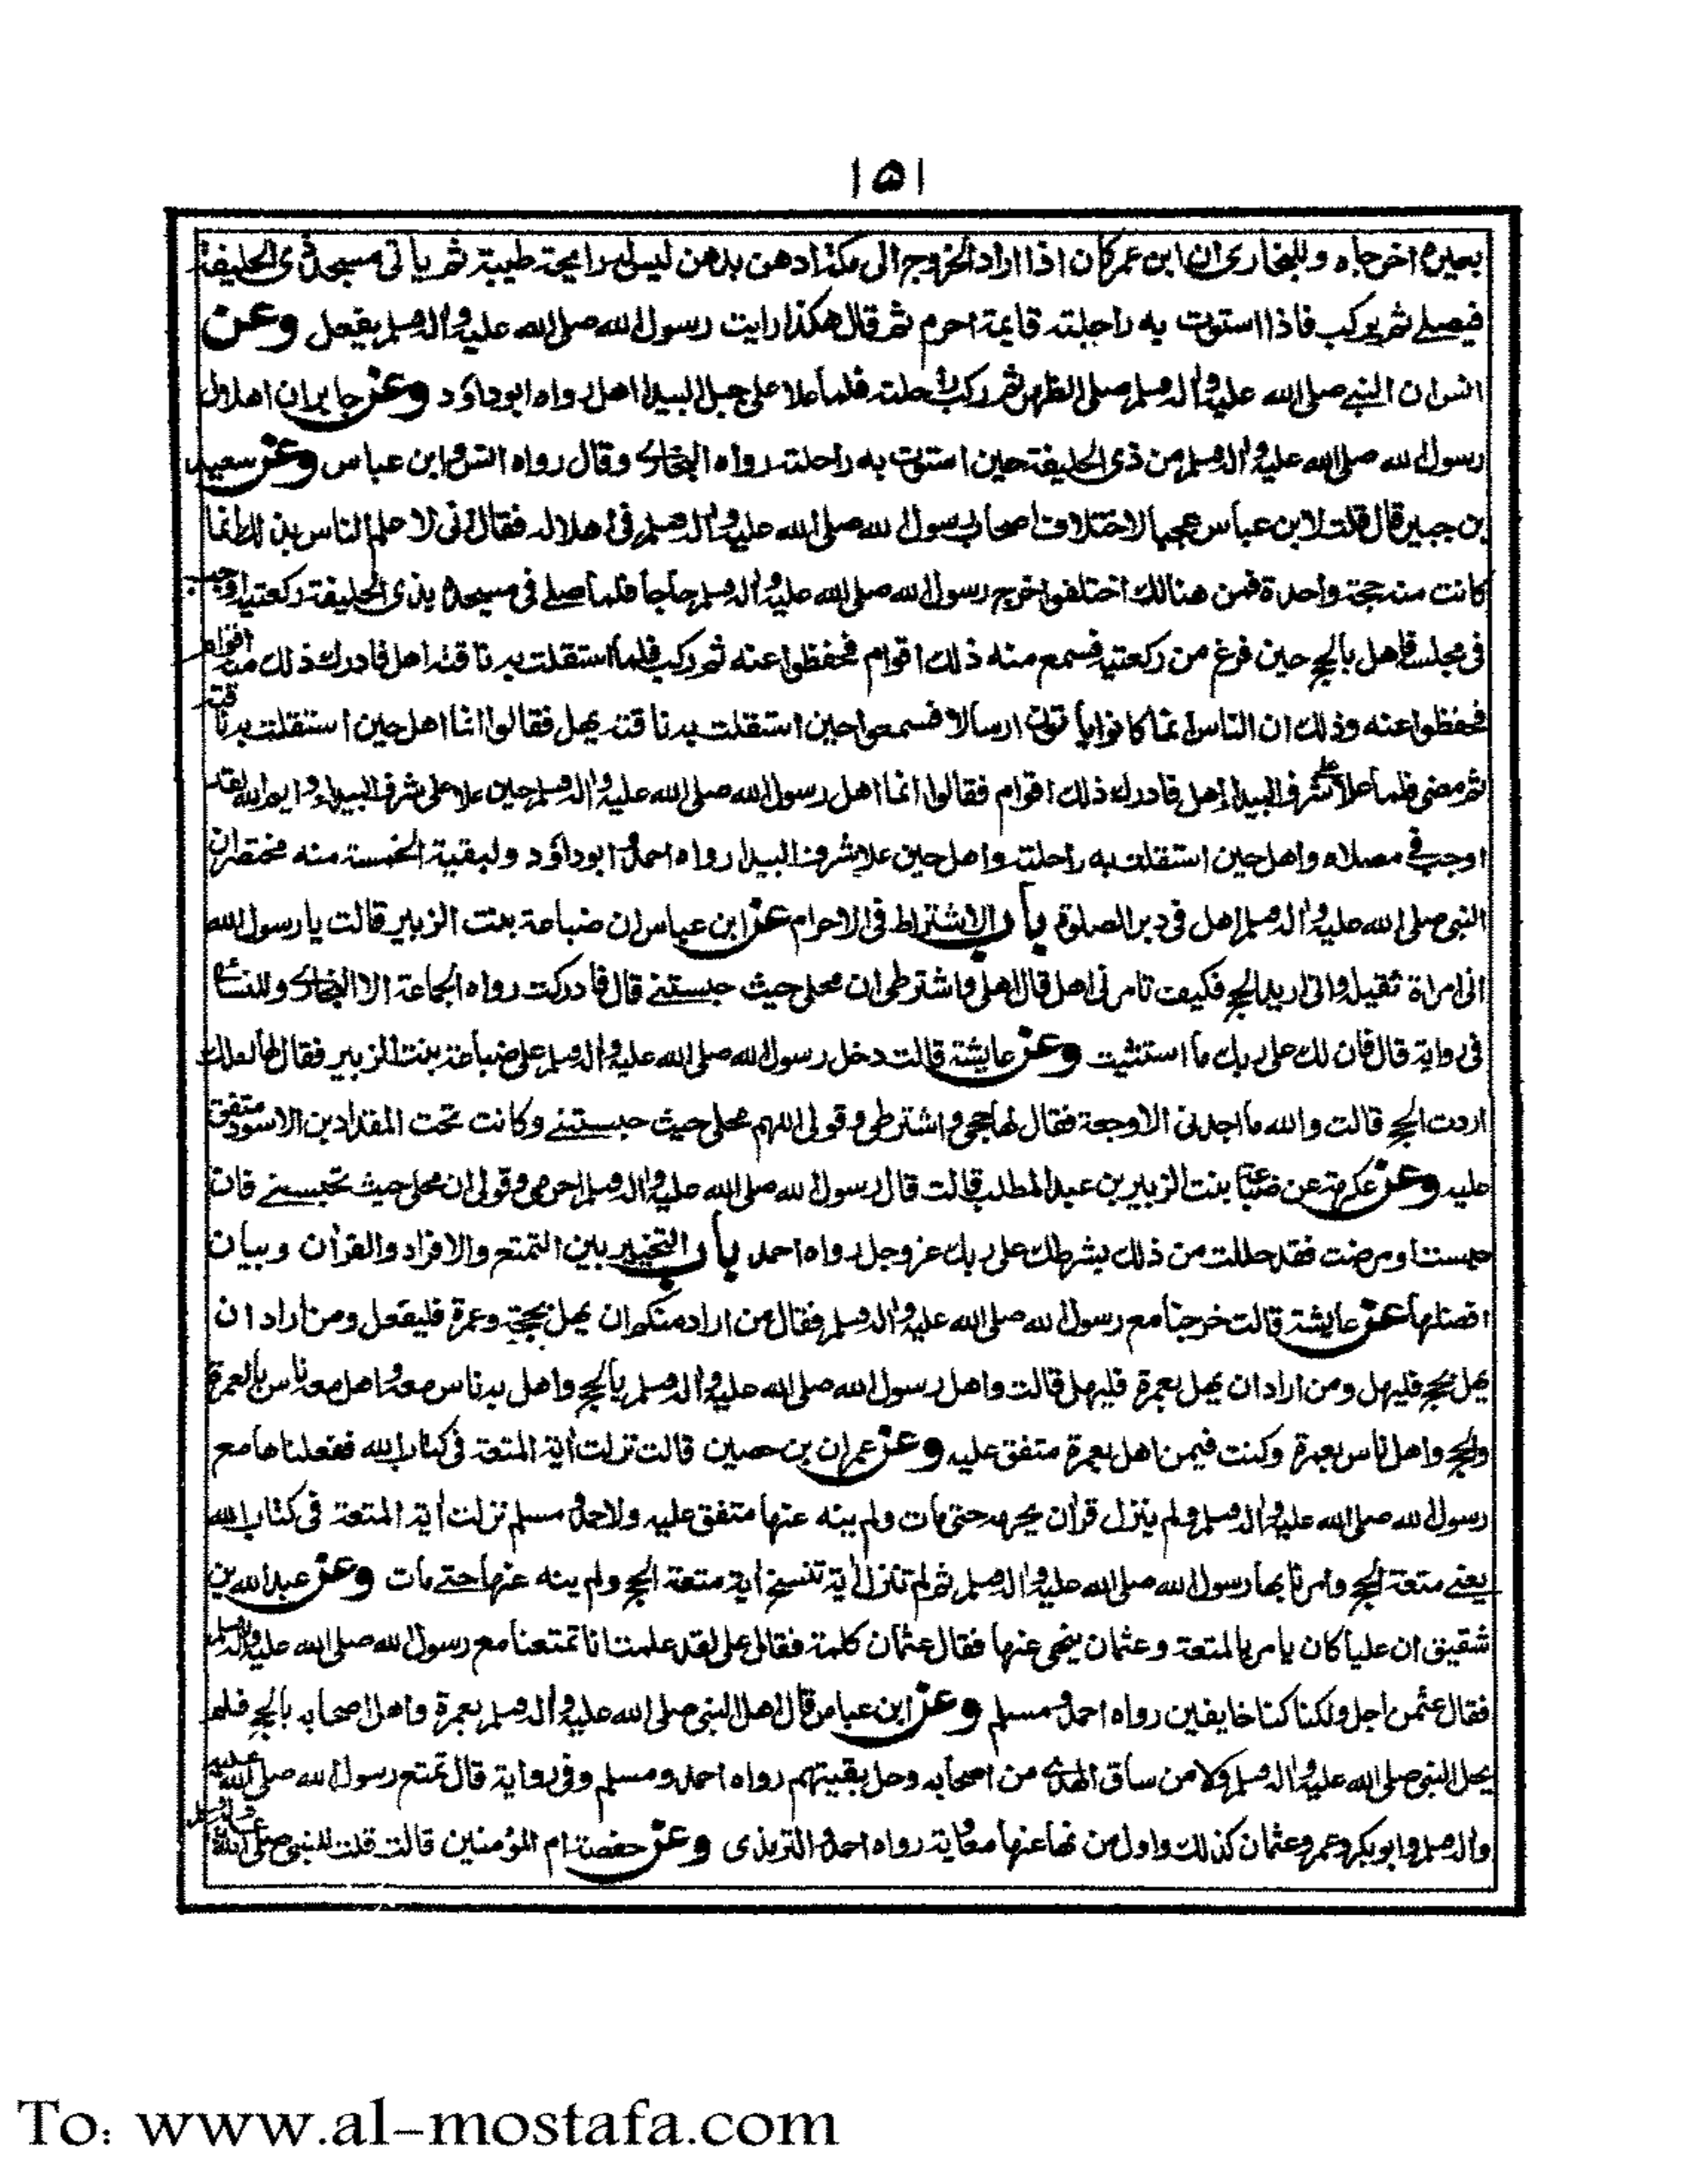 ١٥١
بعيره اخرجاه وللبخارى ان ابن عمر كان اذا اراد الخروج الى مكة ادهن بدهن ليس له رايحة طيبة ثم ياتى مسجد ذى الحليفة
فيصلے ثم يركب فاذا استوت به راحلته قايمة احرم ثم قال هكذا رايت رسول الله صلى الله عليه واله وسلم يفعل وعن
انس ان النبے صلى الله عليه واله وسلم صلى الظهر ثم ركب راحلته فلما علا على جبل البيدا اهل رواه ابوداؤد وعن جابر ان اهلال
رسول الله صلى الله عليه واله وسلم من ذى الحليفة حين استوت به راحلته رواه البخارى وقال رواه انس وابن عباس وعن سعيد
بن جبير قال قلت لابن عباس عجبا لاختلاف اصحاب رسول الله صلى الله عليه واله وسلم فى اهلاله فقال انى لا علم الناس بذلك انما
كانت منه حجة واحدة فمن هنالك اختلفوا خرج رسول الله صلى الله عليه واله وسلم حاجا فلما صلے فى مسجده بذى الحليفة ركعتيه اوجب
فى مجلسه فاهل بالحج حين فرغ من ركعتيه فسمع منه ذلك اقوام فحفظوا عنه ثم ركب فلما استقلت به ناقته اهل فادرك ذلك منه اقوام
فحفظوا عنه وذلك ان الناس انما كانوا ياتون ارسالا فسمعوا حين استقلت به ناقته يهل فقالوا انما اهل حين استقلت به ناقته
ثم مضى فلما علا على شرف البيدا اهل فادرك ذلك اقوام فقالوا انما اهل رسول الله صلى الله عليه واله وسلم حين علا على شرف البيداء وايم الله لقد
اوجب فى مصلاه واهل حين استقلت به راحلته واهل حين علا شرف البيدا رواه احمد وابوداؤد ولبقية الخمسة منه مختصرا ان
النبى صلى الله عليه واله وسلم اهل فى دبر الصلوة باب الاشتراط فى الاحرام عن ابن عباس ان ضباعة بنت الزبير قالت يا رسول الله
انى امراة ثقيلة وانى اريد الحج فكيف تامرنى اهل قال اهلى واشترطى ان محلى حيث حبستنے قال فادركت رواه الجماعة الا البخارى وللنسائى
فى رواية قال فان لك على ربك ما استثنيت وعن عايشة قالت دخل رسول الله صلى الله عليه واله وسلم على ضباعة بنت الزبير فقال لها لعلك
اردت الحج قالت والله ما اجدنى الا وجعة فقال لها حجى واشترطى وقولى اللهم محلى حيث حبستنے وكانت تحت المقداد بن الاسود متفق
عليه وعن عكرمة عن ضباعة بنت الزبير بن عبد المطلب قالت قال رسول الله صلى الله عليه واله وسلم احرمى وقولى ان محلى حيث تحبسنے فان
حبست او مرضت فقد حللت من ذلك بشرطك على ربك عز وجل رواه احمد باب التخيير بين التمتع والافراد والقران وبيان
افضلها عن عايشة قالت خرجنا مع رسول الله صلى الله عليه واله وسلم فقال من اراد منكم ان يهل بحجة وعمرة فليفعل ومن اراد ان
يهل بحج فليهل ومن اراد ان يهل بعمرة فليهل قالت واهل رسول الله صلى الله عليه واله وسلم بالحج واهل به ناس معه واهل معه ناس بالعمرة
والحج واهل ناس بعمرة وكنت فيمن اهل بعمرة متفق عليه وعن عمران بن حصين قالت نزلت أية المتعة فى كتاب الله ففعلناها مع
رسول الله صلى الله عليه واله وسلم ولم ينزل قرأن يحرمه حتى مات ولم ينه عنها متفق عليه ولاحمد ومسلم نزلت أية المتعة فى كتاب الله
يعنے متعة الحج وامرنا بها رسول الله صلى الله عليه واله وسلم ثم لم تنزل أية تنسخ اية متعة الحج ولم ينه عنها حتے مات وعن عبد الله بن
شقيق ان عليا كان يامر بالمتعة وعثمان ينهى عنها فقال عثمان كلمة فقال على لقد علمت انا تمتعنا مع رسول الله صلى الله عليه واله وسلم
فقال عثمن اجل ولكنا كنا خايفين رواه احمد ومسلم وعن ابن عباس قال اهل النبى صلى الله عليه واله وسلم بعمرة واهل اصحابه بالحج فلم
يحل النبى صلى الله عليه واله وسلم ولا من ساق الهدى من اصحابه وحل بقيتهم رواه احمد ومسلم وفى رواية قال تمتع رسول الله صلى الله عليه
واله وسلم وابو بكر وعمر وعثمان كذلك واول من نها عنها معاوية رواه احمد والترمذى وعن حفصة ام المؤمنين قالت قلت للنبى صلى الله عليه واله وسلم
To: www.al-mostafa.com